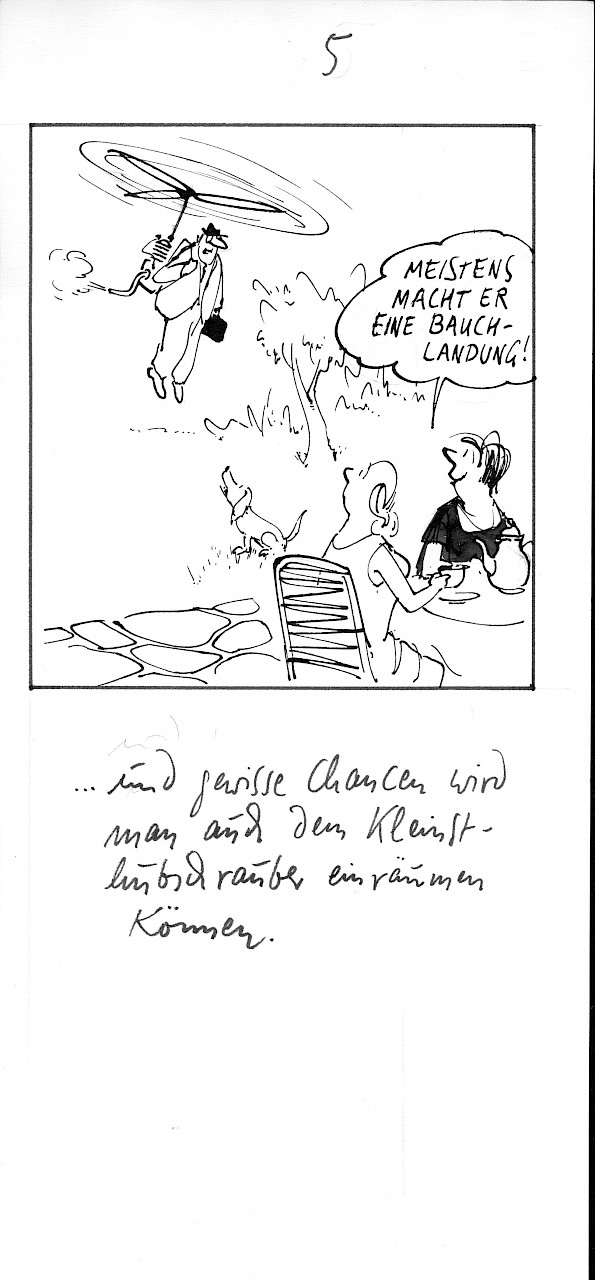 5
MEISTENS
MACHT ER
EINE BAUCH-
LANDUNG!
... und gewisse Chancen wird
man auch dem Kleinst-
hubschrauber einräumen
können.